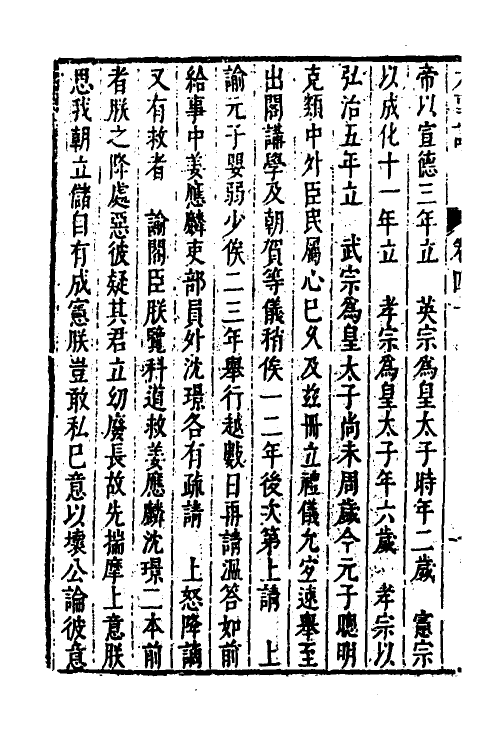 帝以宣德三年立　英宗爲皇太子時年二歲　憲宗
以成化十一年立　孝宗爲皇太子年六歲　孝宗以
弘治五年立　武宗爲皇太子尚未周歲今元子聰明
克類中外臣民屬心已久及兹冊立禮儀允宜速舉至
出閣講學及朝賀等儀稍俟一二年後次第上請　上
諭元子嬰弱少俟二三年舉行越數日再請溫答如前
給事中姜應麟吏部員外沈璟各有疏請　上怒降謫
又有救者　諭閣臣朕覽科道救姜應麟沈璟二本前
者朕之降處惡彼疑其君立幼廢長故先揣摩上意朕
思我朝立儲自有成憲朕豈敢私已意以壞公論彼意